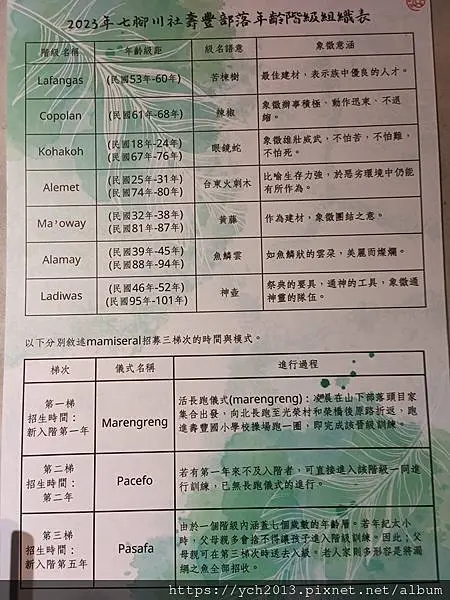 2023年七腳川社壽豐部落年齡階級組織表
階級名稱 年齡級距 級名語意 象徵意涵
Lafangas (民國53年-60年) 苦楝樹 最佳建材,表示族中優良的人才。
Copolan (民國61年-68年) 辣椒 象徵辦事積極、動作迅速、不退
縮。
Kohakoh (民國18年-24年)
(民國67年-76年) 眼鏡蛇 象徵雄壯威武,不怕苦,不怕難,
不怕死。
Alemet (民國25年-31年)
(民國74年-80年) 台東火刺木 比喻生存力強,於惡劣環境中仍能
有所作為。
Ma'oway (民國32年-38年)
(民國81年-87年) 黃藤 作為建材,象徵團結之意。
Alamay (民國39年-45年)
(民國88年-94年) 魚鱗雲 如魚鱗狀的雲朵,美麗而燦爛。
Ladiwas (民國46年-52年)
(民國95年-101年) 神壺 祭典的要具,通神的工具,象徵通
神靈的隊伍。
以下分別敘述mamiseral招募三梯次的時間與模式。
梯次 儀式名稱 進行過程
第一梯
招生時間:
新入階第一年
Marengreng
活長跑儀式(marengreng):凌晨在山下部落頭目家
集合出發,向北長跑至光榮村和榮橋後原路折返,跑
進壽豐國小學校操場跑一圈,即完成該晉級訓練。
第二梯
招生時間:
第二年
Pacefo
若有第一年來不及入階者,可直接進入該階級一同進
行訓練,已無長跑儀式的進行。
第三梯
招生時間:
新入階第五年
Pasafa
由於一個階級內涵蓋七個歲數的年齡層。若年紀太小
時,父母親多會捨不得讓孩子進入階級訓練。因此;父
母親可在第三梯次時送去入級。老人家則多形容是將漏
網之魚全部招收。
https://ych2013.pixnet.net/album